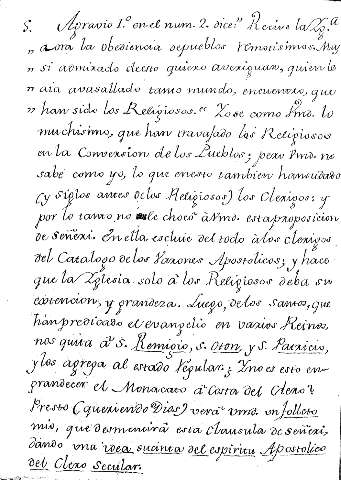 5. Agravio 1.º en el num. 2. dice: "Recive la Yg.ª
„ aora la obediencia de pueblos remotisimos. Mas
„ si admirado de esto quiero averiguar, quien lo
„ aia avasallado tanto mundo, encuentro, que
„ han sido los Religiosos." Yo se como Vmd. lo
muchisimo, que han travajado los Religiosos
en la Conversion de los Pueblos; pero Vmd. no
sabe como yo, lo que en esto tambien han sudado
(y siglos antes de los Religiosos) los Clerigos: y
por lo tanto no le choca à Vmd. esta proposicion
de Señeri. En ella escluie del todo à los clerigos
del Catalogo de los Varones Apostolicos; y hace
que la Yglesia solo à los Religiosos deba su
extencion, y grandeza. Luego, de los Santos, que
han predicado el evangelio en varios Reinos,
nos quita à S. Remigio, S. Oton, y S. Patricio,
y los agrega al estado Regular. ¿Y no es esto en-
grandecer el Monacato à Costa del Clero?
Presto (queriendo Dios) verà vmd. un folleto
mio, que desmentirà esta Clausula de Señeri,
dando una idea sucinta del espiritu Apostolico
del Clero Secular.